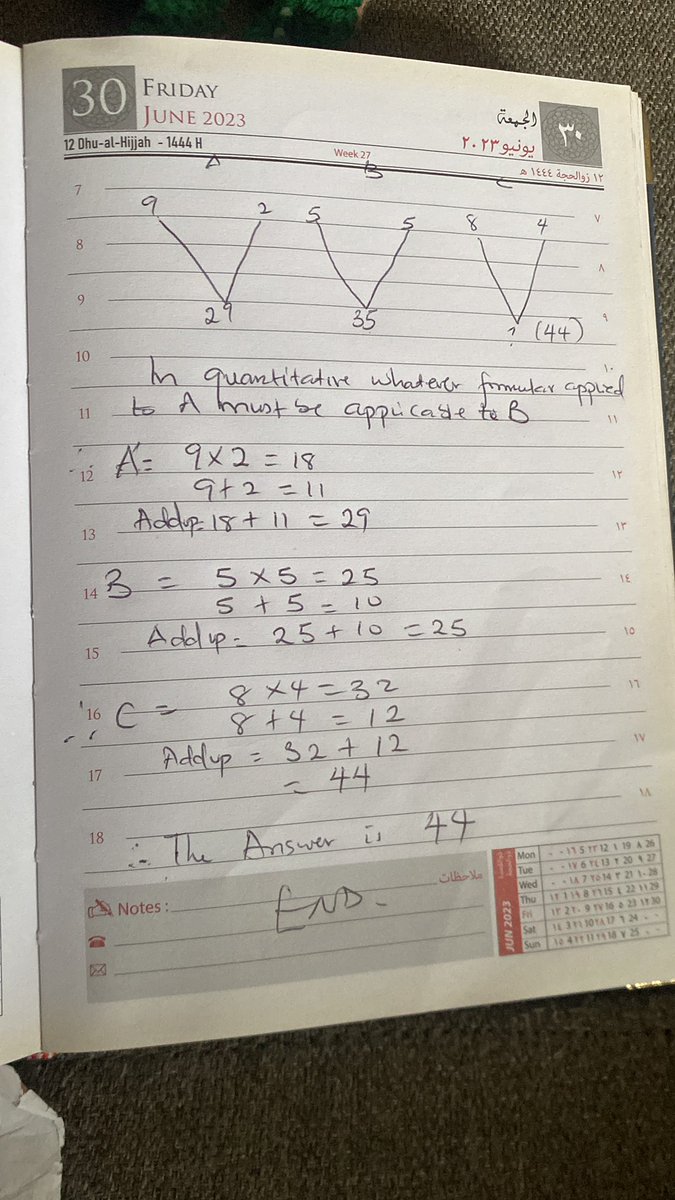 30 FRIDAY
JUNE 2023
الجمعة ٣٠
يونيو ٢٠٢٣
12 Dhu-al-Hijjah - 1444 H
Week 27
١٢ ذوالحجة ١٤٤٤ هـ
A B C
7 ٧
9 2 5 5 8 4
8 ٨
9 ٩
29 35 ? (44)
10 ١٠
In quantitative whatever formular applied
11 to A must be applicable to B ١١
12 ∴ A = 9 x 2 = 18 ١٢
9 + 2 = 11
13 Add up = 18 + 11 = 29 ١٣
14 B = 5 x 5 = 25 ١٤
5 + 5 = 10
15 Add up = 25 + 10 = 25 ١٥
16 ∴ C = 8 x 4 = 32 ١٦
8 + 4 = 12
17 Add up = 32 + 12 ١٧
= 44
18 ∴ The Answer is 44 ١٨
Notes : ملاحظات
END.
JUN 2023
Mon
Tue
Wed
Thu
Fri
Sat
Sun